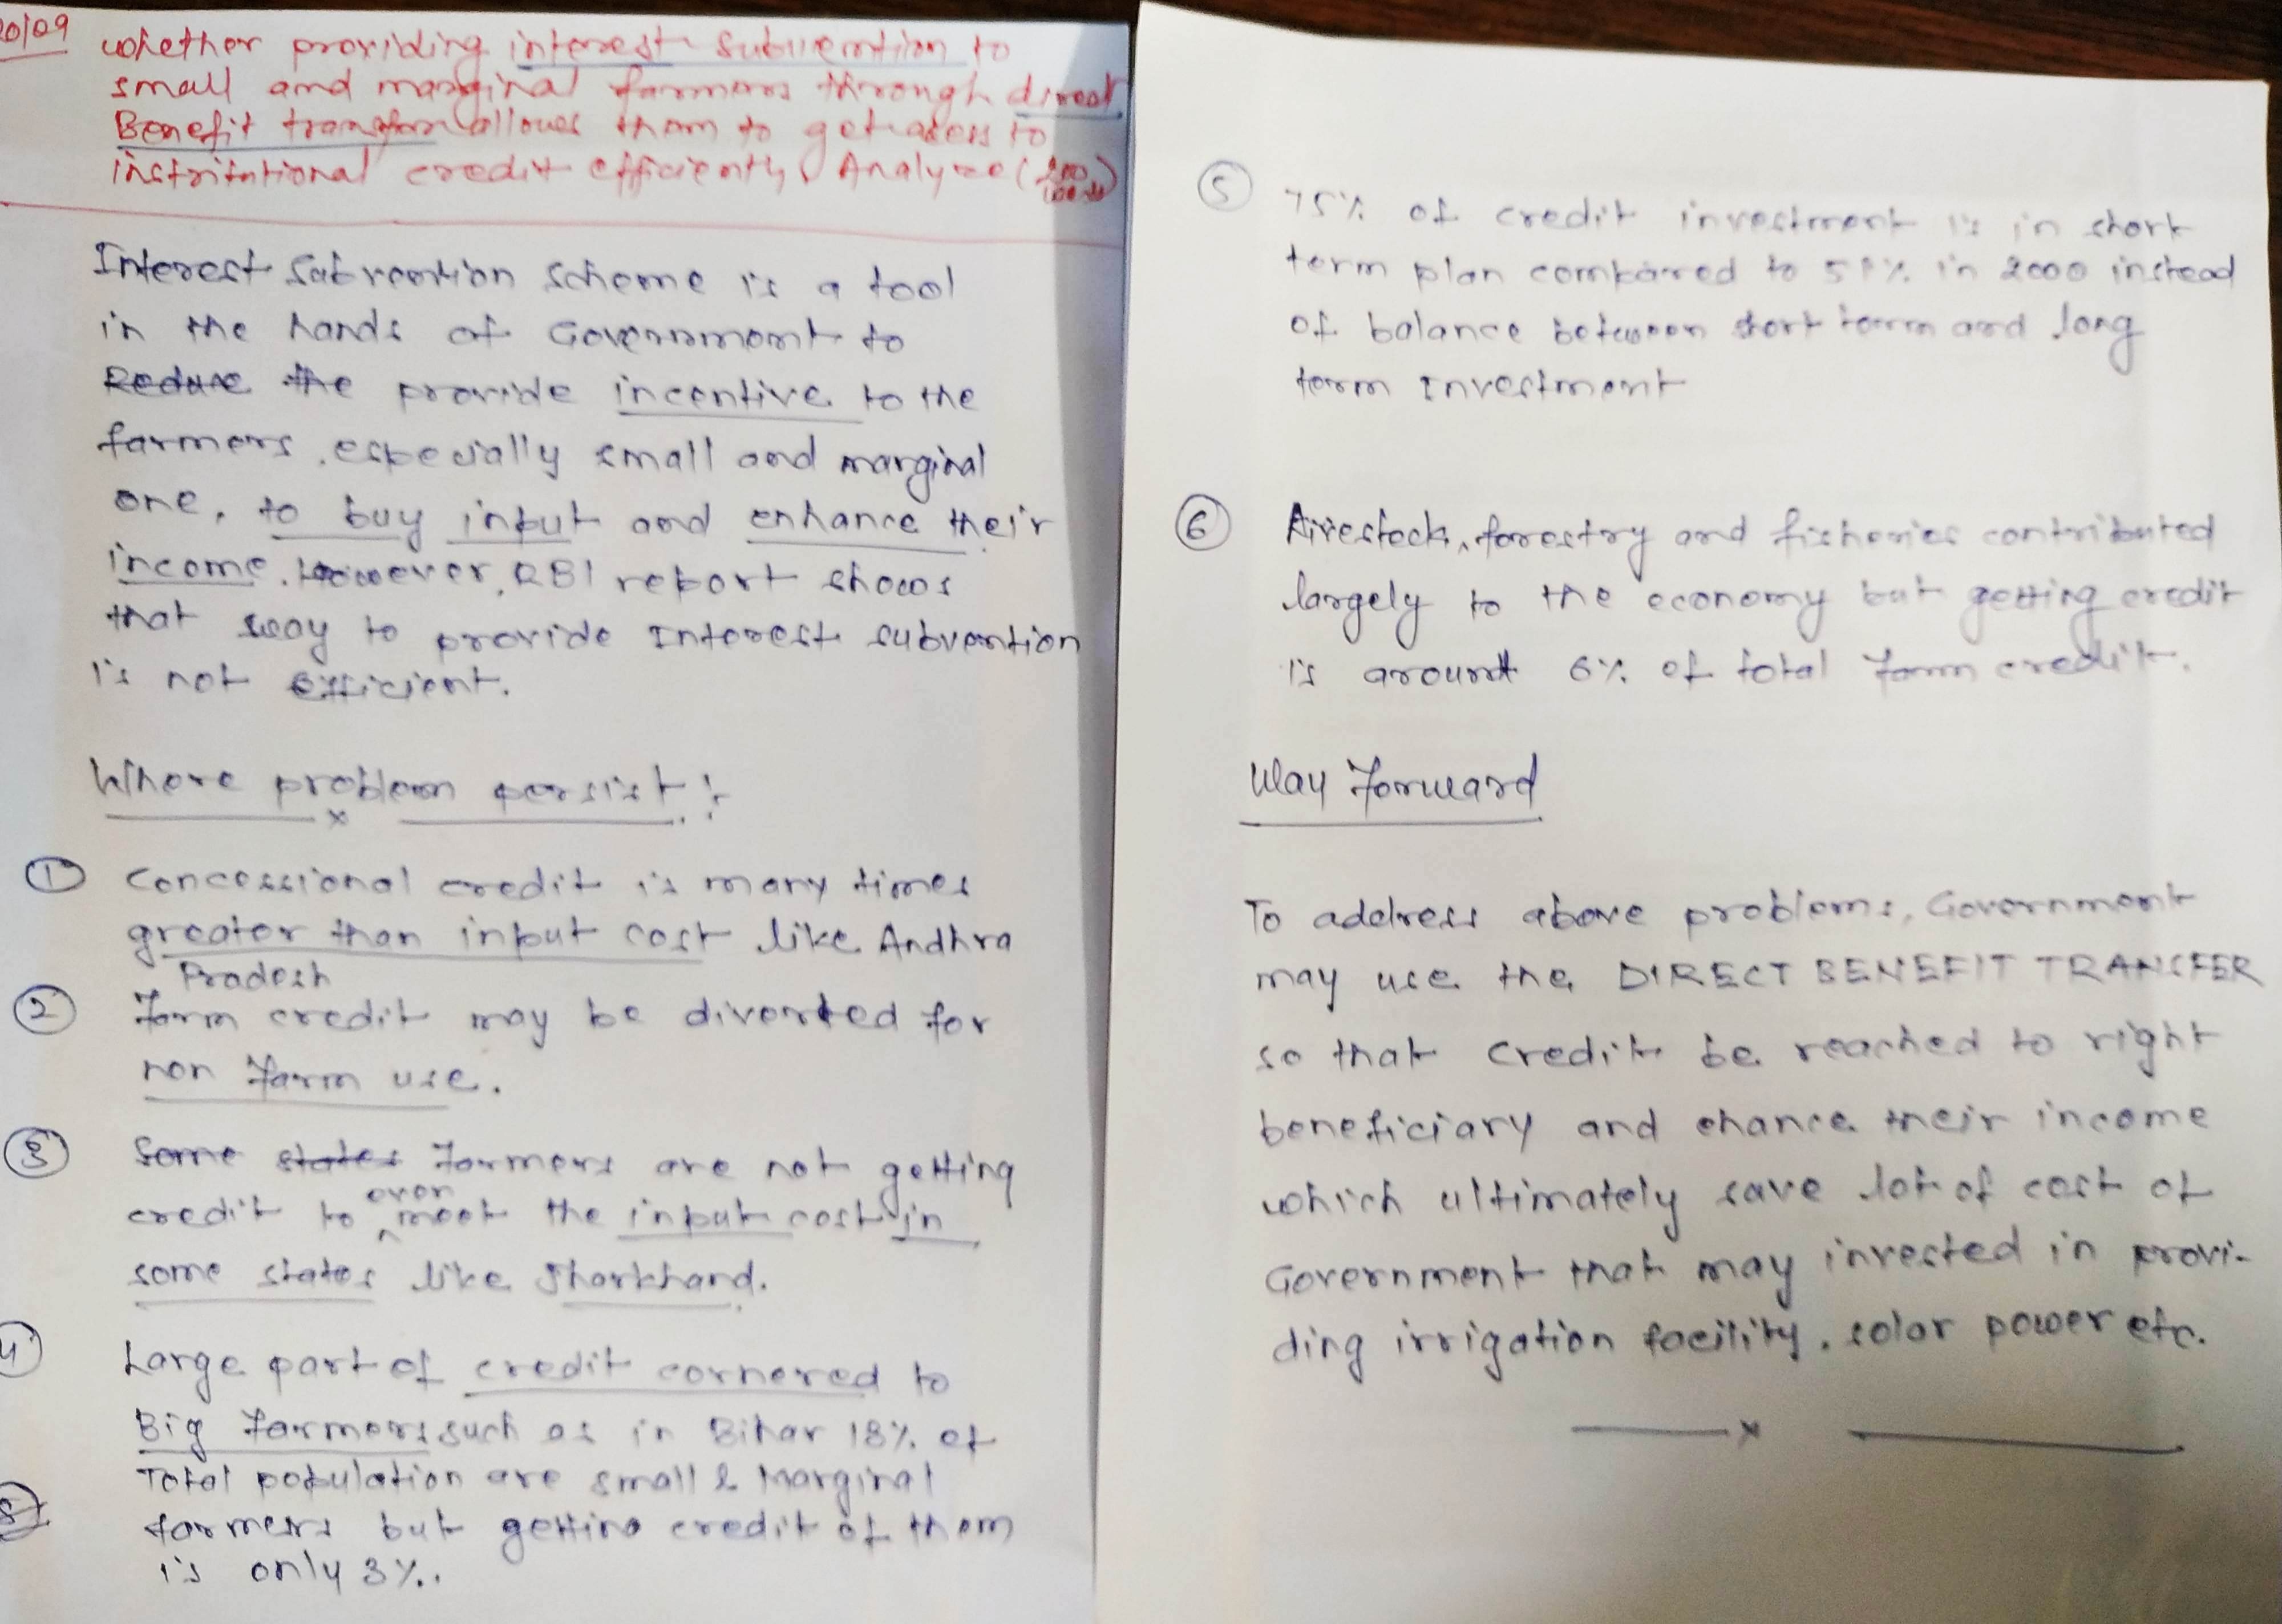 20/09
whether providing interest subvention to
small and marginal farmers through direct
Benefit transfer allows them to get access to
institutional credit efficiently Analyze (200
words)
Interest Subvention Scheme is a tool
in the hands of Government to
Reduce the provide incentive to the
farmers, especially small and marginal
one, to buy input and enhance their
income. However, RBI report shows
that way to provide Interest subvention
is not efficient.
Where problem persist :
① Concessional credit is many times
greater than input cost like Andhra
Pradesh
② Farm credit may be diverted for
non farm use.
③ Some states farmers are not getting
credit to even meet the input cost in
some states like Jharkhand.
④ Large part of credit cornered to
Big farmers such as in Bihar 18% of
Total population are small & Marginal
farmers but getting credit of them
is only 3%.
⑤ 75% of credit investment is in short
term plan compared to in 2000 instead
of balance between short term and long
term Investment
⑥ Livestock, forestry and fisheries contributed
largely to the economy but getting credit
is around 6% of total farm credit.
Way Forward
To address above problems, Government
may use the DIRECT BENEFIT TRANSFER
so that credit be reached to right
beneficiary and ehance their income
which ultimately save lot of cost of
Government that may invested in provi-
ding irrigation facility, solar power etc.